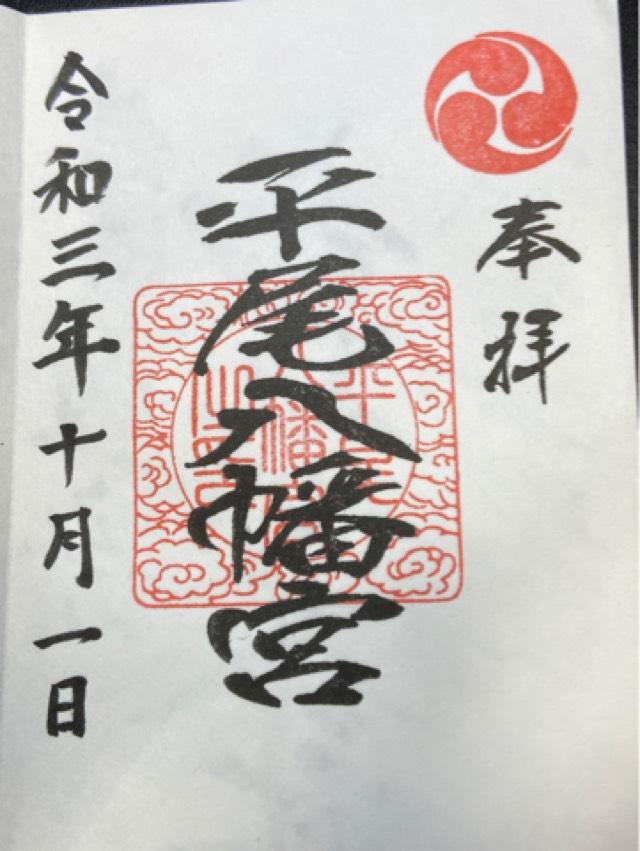 奉拝
平尾八幡宮
令和三年十月一日